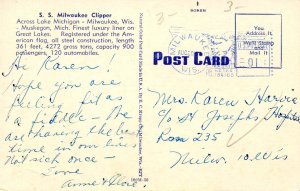 S. S. Milwaukee Clipper
Across Lake Michigan - Milwaukee, Wis.
- Muskegon, Mich. Finest luxury liner on
Great Lakes. Registered under the Am-
erican flag, all steel construction, length
361 feet, 4272 gross tons, capacity 900
passengers, 120 automobiles.
Hi Karen!
Hope you are
feeling fit as
a fiddle - We
are having the best
time in our lives
Not sick once -
Love
Anne &
POST CARD
You Address
It.
Mail It.
Mrs. Karen
c/o St Josephs Hospital
Rm 235
Milw. 10. Wis